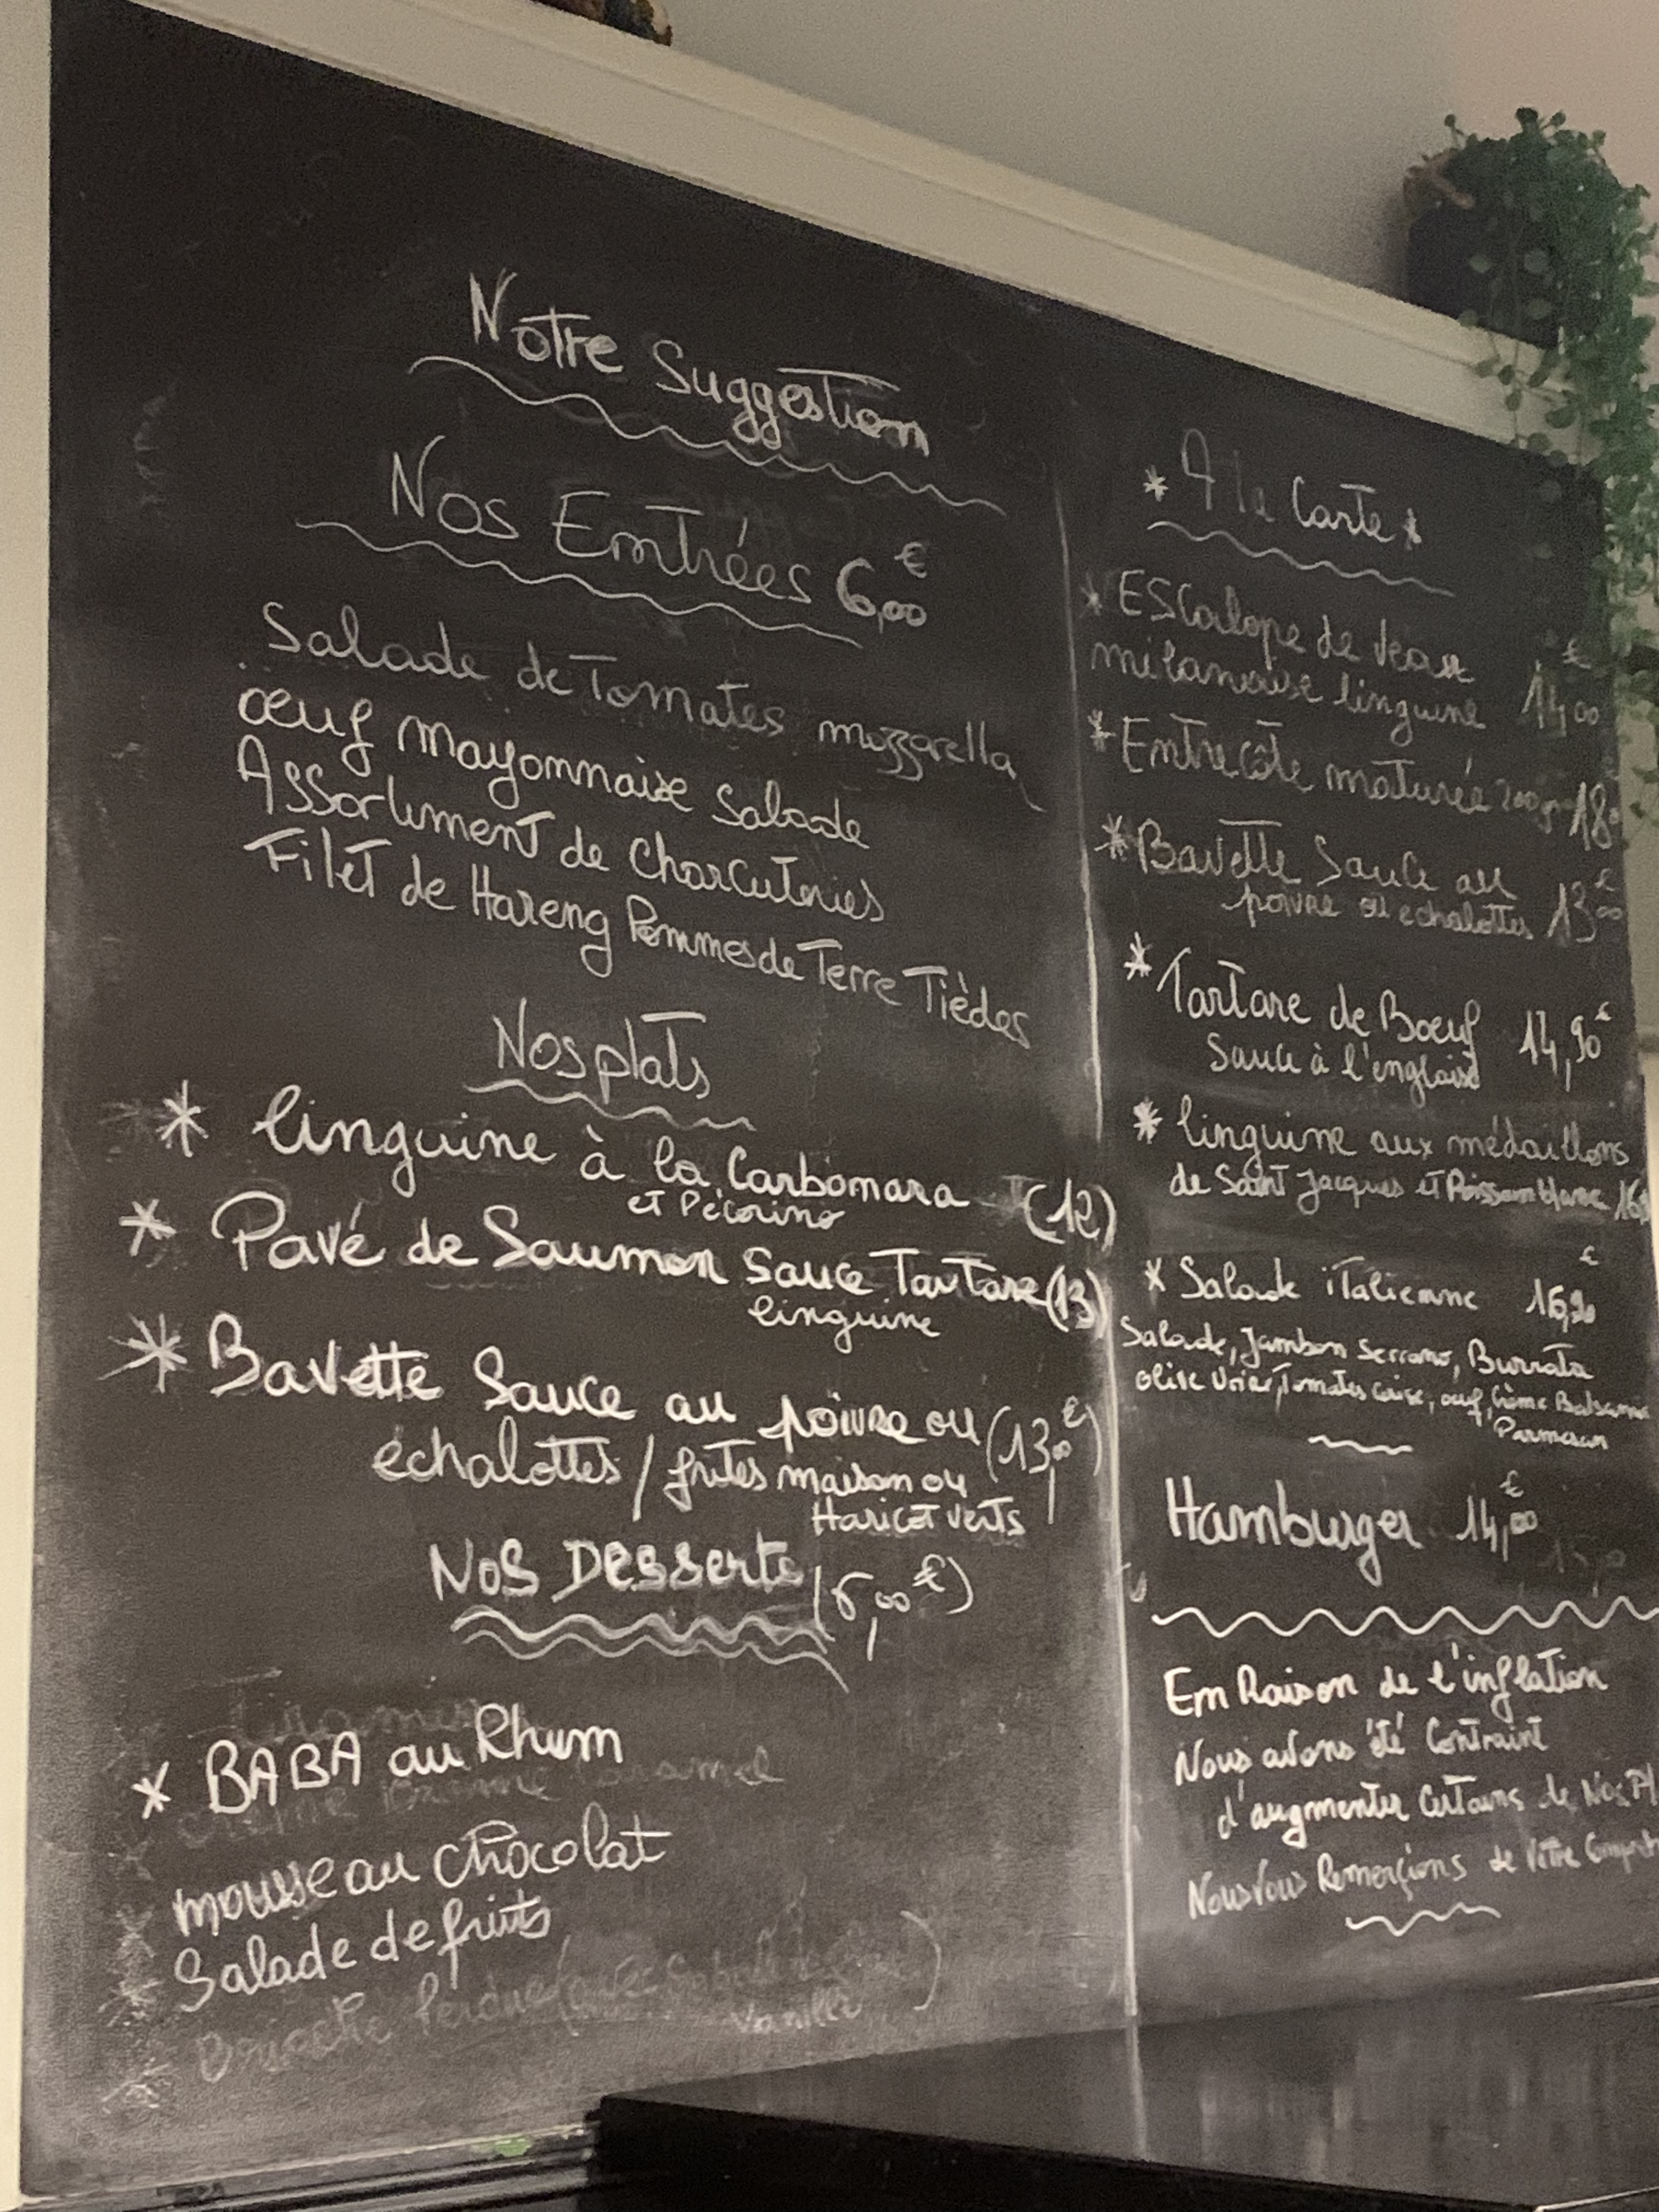 Notre Suggestion
Nos Entrées 6,00€
Salade de Tomates mozzarella
œuf mayonnaise Salade
Assortiment de Charcuteries
Filet de Hareng Pommes de Terre Tièdes
Nos plats
* linguine à la Carbonara (12)
et Pécorino
* Pavé de Saumon Sauce Tartare (13)
linguine
* Bavette Sauce au poivre ou (13,00€)
échalottes / frites maison ou
Haricot verts
Nos Desserts (6,00€)
* BABA au Rhum
mousse au chocolat
Salade de fruits
Brioche Perdue (avec
Vanille)
* A la Carte *
* Escalope de Veau
milanaise linguine 14,00€
* Entrecôte maturée 200gr 18
* Bavette Sauce au
poivre ou echalottes 13,00€
* Tartare de Boeuf 14,90€
Sauce à l'englaise
* linguine aux médaillons
de Saint Jacques et Poisson blanc 16
* Salade italienne 16,90€
Salade, Jambon Serrano, Burrata
olive Noires, Tomates cerise, oeuf, Crème Balsamic
Parmesan
Hamburger 14,00€
En Raison de l'inflation
Nous avons été Contraint
d'augmenter Certains de Nos Pl
Nous Vous Remerçions de Votre